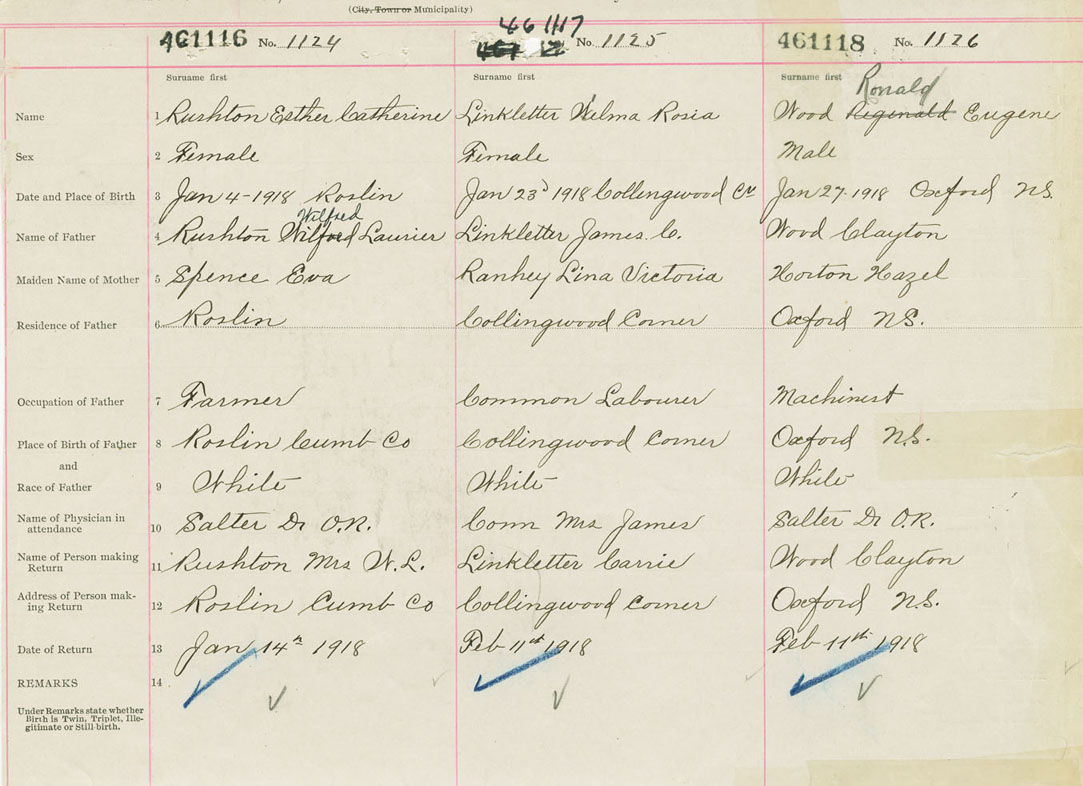 (City, Town or Municipality)
461116 No. 1124 461117 No. 1125 461118 No. 1126
Surname first Surname first Surname first
Ronald
Name 1 Rushton Esther Catherine Linkletter Welma Rosia Wood Reginald Eugene
Sex 2 Female Female Male
Date and Place of Birth 3 Jan 4-1918 Roslin Jan 23d 1918 Collingwood Cr Jan 27-1918 Oxford NS.
Wilfred
Name of Father 4 Rushton Wilfred Laurier Linkletter James. C. Wood Clayton
Maiden Name of Mother 5 Spence Eva Ranhey Lina Victoria Horton Hazel
Residence of Father 6 Roslin Collingwood Corner Oxford NS.
Occupation of Father 7 Farmer Common Labourer Machinest
Place of Birth of Father 8 Roslin Cumb Co Collingwood Corner Oxford N.S.
and
Race of Father 9 White White White
Name of Physician in
attendance 10 Salter Dr O.R. Conn Mrs James Salter Dr O.R.
Name of Person making
Return 11 Rushton Mrs W.L. Linkletter Carrie Wood Clayton
Address of Person mak-
ing Return 12 Roslin Cumb Co Collingwood Corner Oxford NS.
Date of Return 13 Jan 14th 1918 Feb 11th 1918 Feb 11th 1918
REMARKS 14
Under Remarks state whether
Birth is Twin, Triplet, Ille-
gitimate or Still-birth.